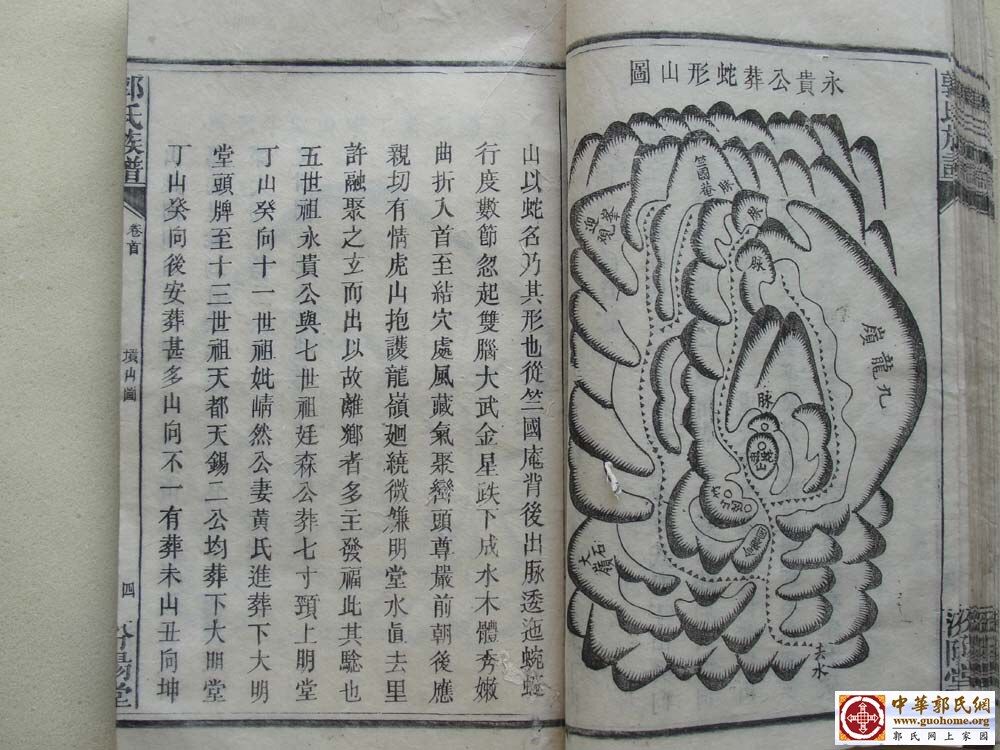 永貴公葬蛇形山圖
竺國庵
脉
脉
脉
九龍嶺
脉
蛇山
大石嶺
去水
山以蛇名乃其形也從竺國庵背後出脉透迤蜿蜒
行度數節忽起雙腦大武金星跌下成水木體秀嫩
曲折入首至結穴處風藏氣聚巒頭尊嚴前朝後應
親切有情虎山抱護龍嶺廻繞微嫌明堂水眞去里
許融聚之立而出以故離鄉者多主發福此其騐也
五世祖永貴公與七世祖廷森公葬七寸頸上明堂
丁山癸向十一世祖妣崝然公妻黃氏進葬下大明
堂頭牌至十三世祖天都天錫二公均葬下大明堂
丁山癸向後安葬甚多山向不一有葬未山丑向坤
郭氏族譜
卷首
墳山圖
四
汾陽堂
中華郭氏網
www.guohome.org
郭氏网上家園